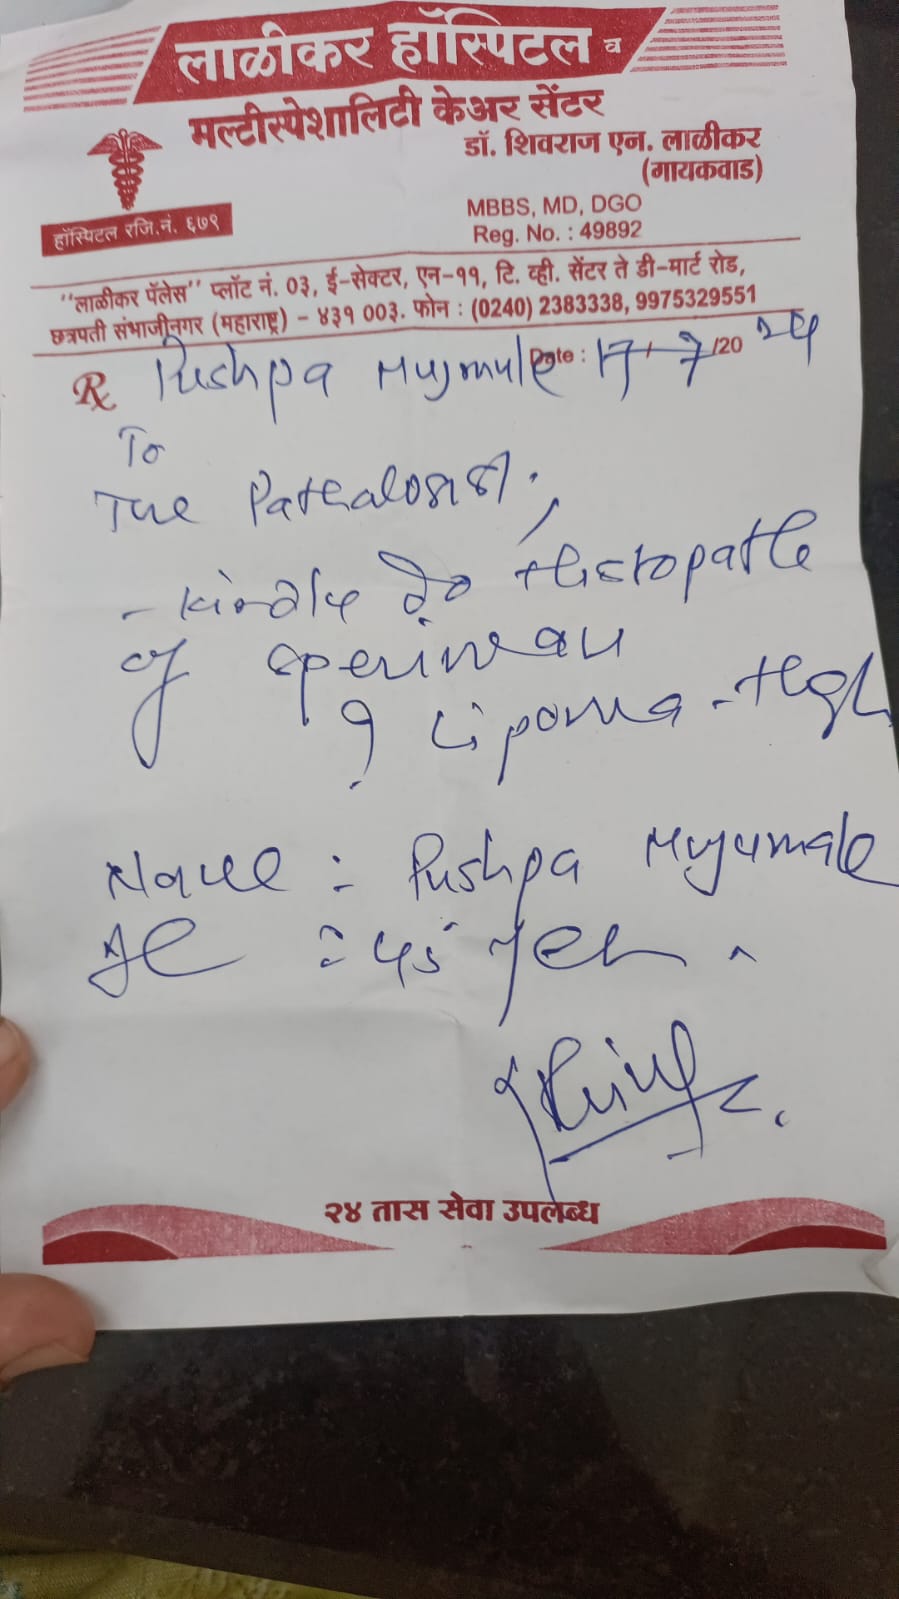 लाळीकर हॉस्पिटल व
मल्टीस्पेशालिटी केअर सेंटर
डॉ. शिवराज एन. लाळीकर
(गायकवाड)
MBBS, MD, DGO
Reg. No. : 49892
हॉस्पिटल रजि.नं. ६७९
"लाळीकर पॅलेस" प्लॉट नं. ०३, ई-सेक्टर, एन-११, टि. व्ही. सेंटर ते डी-मार्ट रोड,
छत्रपती संभाजीनगर (महाराष्ट्र) - ४३१ 003. फोन : (0240) 2383338, 9975329551
Rx Pushpa Date : 17/7/20
To
The
- Kindly do Histopath
of
? Lipoma - thigh
Name : Pushpa
Age :
२४ तास सेवा उपलब्ध